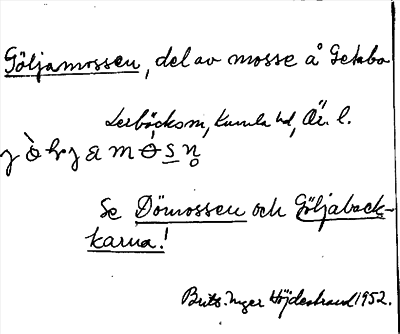 Göljamossen, del av mosse å Getabo
Lerbäcks sn, Kumla hd, Är. l.
Se Dömossen och Göljaback-
karna!
Britt-Inger Höjdestrand 1952.